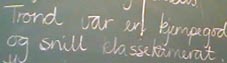 Trond var en kjempegod
og snill klassekamerat.